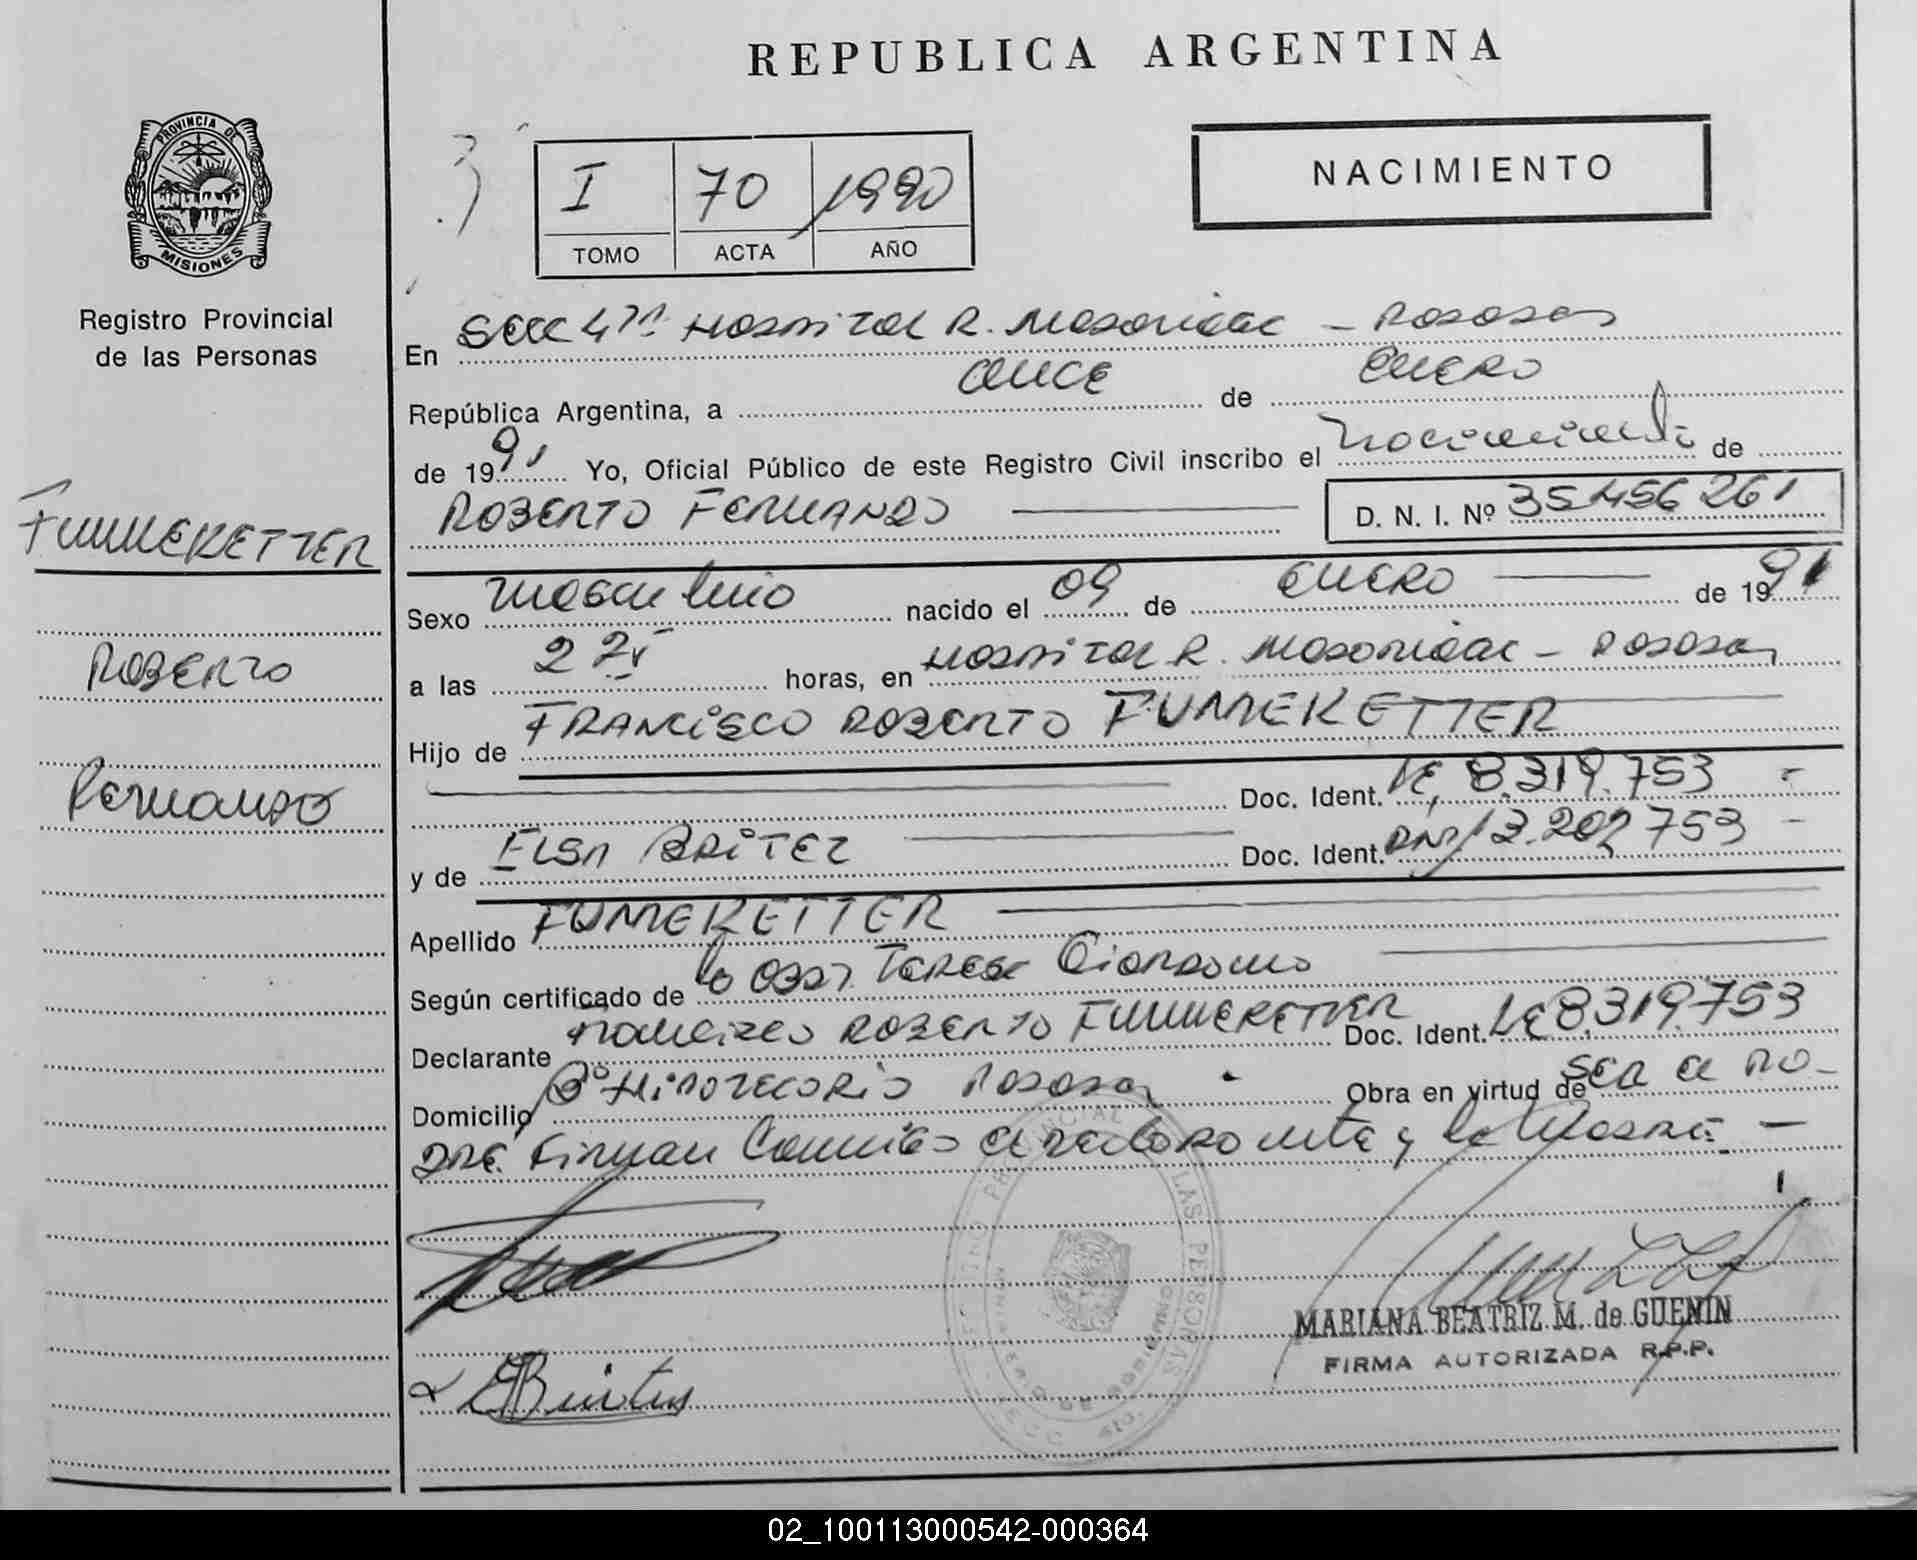 REPUBLICA ARGENTINA
PROVINCIA DE
MISIONES
Registro Provincial
de las Personas
I 70 1990
TOMO ACTA AÑO
NACIMIENTO
En Secc 4ta Hospital R. Madariaga - Posadas
República Argentina, a once de Enero
de 1991 Yo, Oficial Público de este Registro Civil inscribo el nacimiento de
ROBERTO FERNANDO D. N. I. Nº 35456261
FUMMERETTER
ROBERTO
Fernando
Sexo masculino nacido el 09 de ENERO de 1991
a las horas, en Hospital R. Madariaga - Posadas
Hijo de FRANCISCO ROBERTO FUMEKETTER
Doc. Ident. LE, 8.319.753
y de ELSA BRITEZ Doc. Ident. DNI 13.202753
Apellido FUMEKETTER
Según certificado de la Obst. Teresa
Declarante Francisco ROBERTO FUMMERETTER Doc. Ident. LE 8.319.753
Domicilio Bº Hipotecario Posadas Obra en virtud de ser el pa-
dre. Firman Conmigo el declarante y la Madre. -
REGISTRO PROVINCIAL LAS PERSONAS
MARIANA BEATRIZ M. de GUENIN
FIRMA AUTORIZADA R.P.P.
02_100113000542-000364